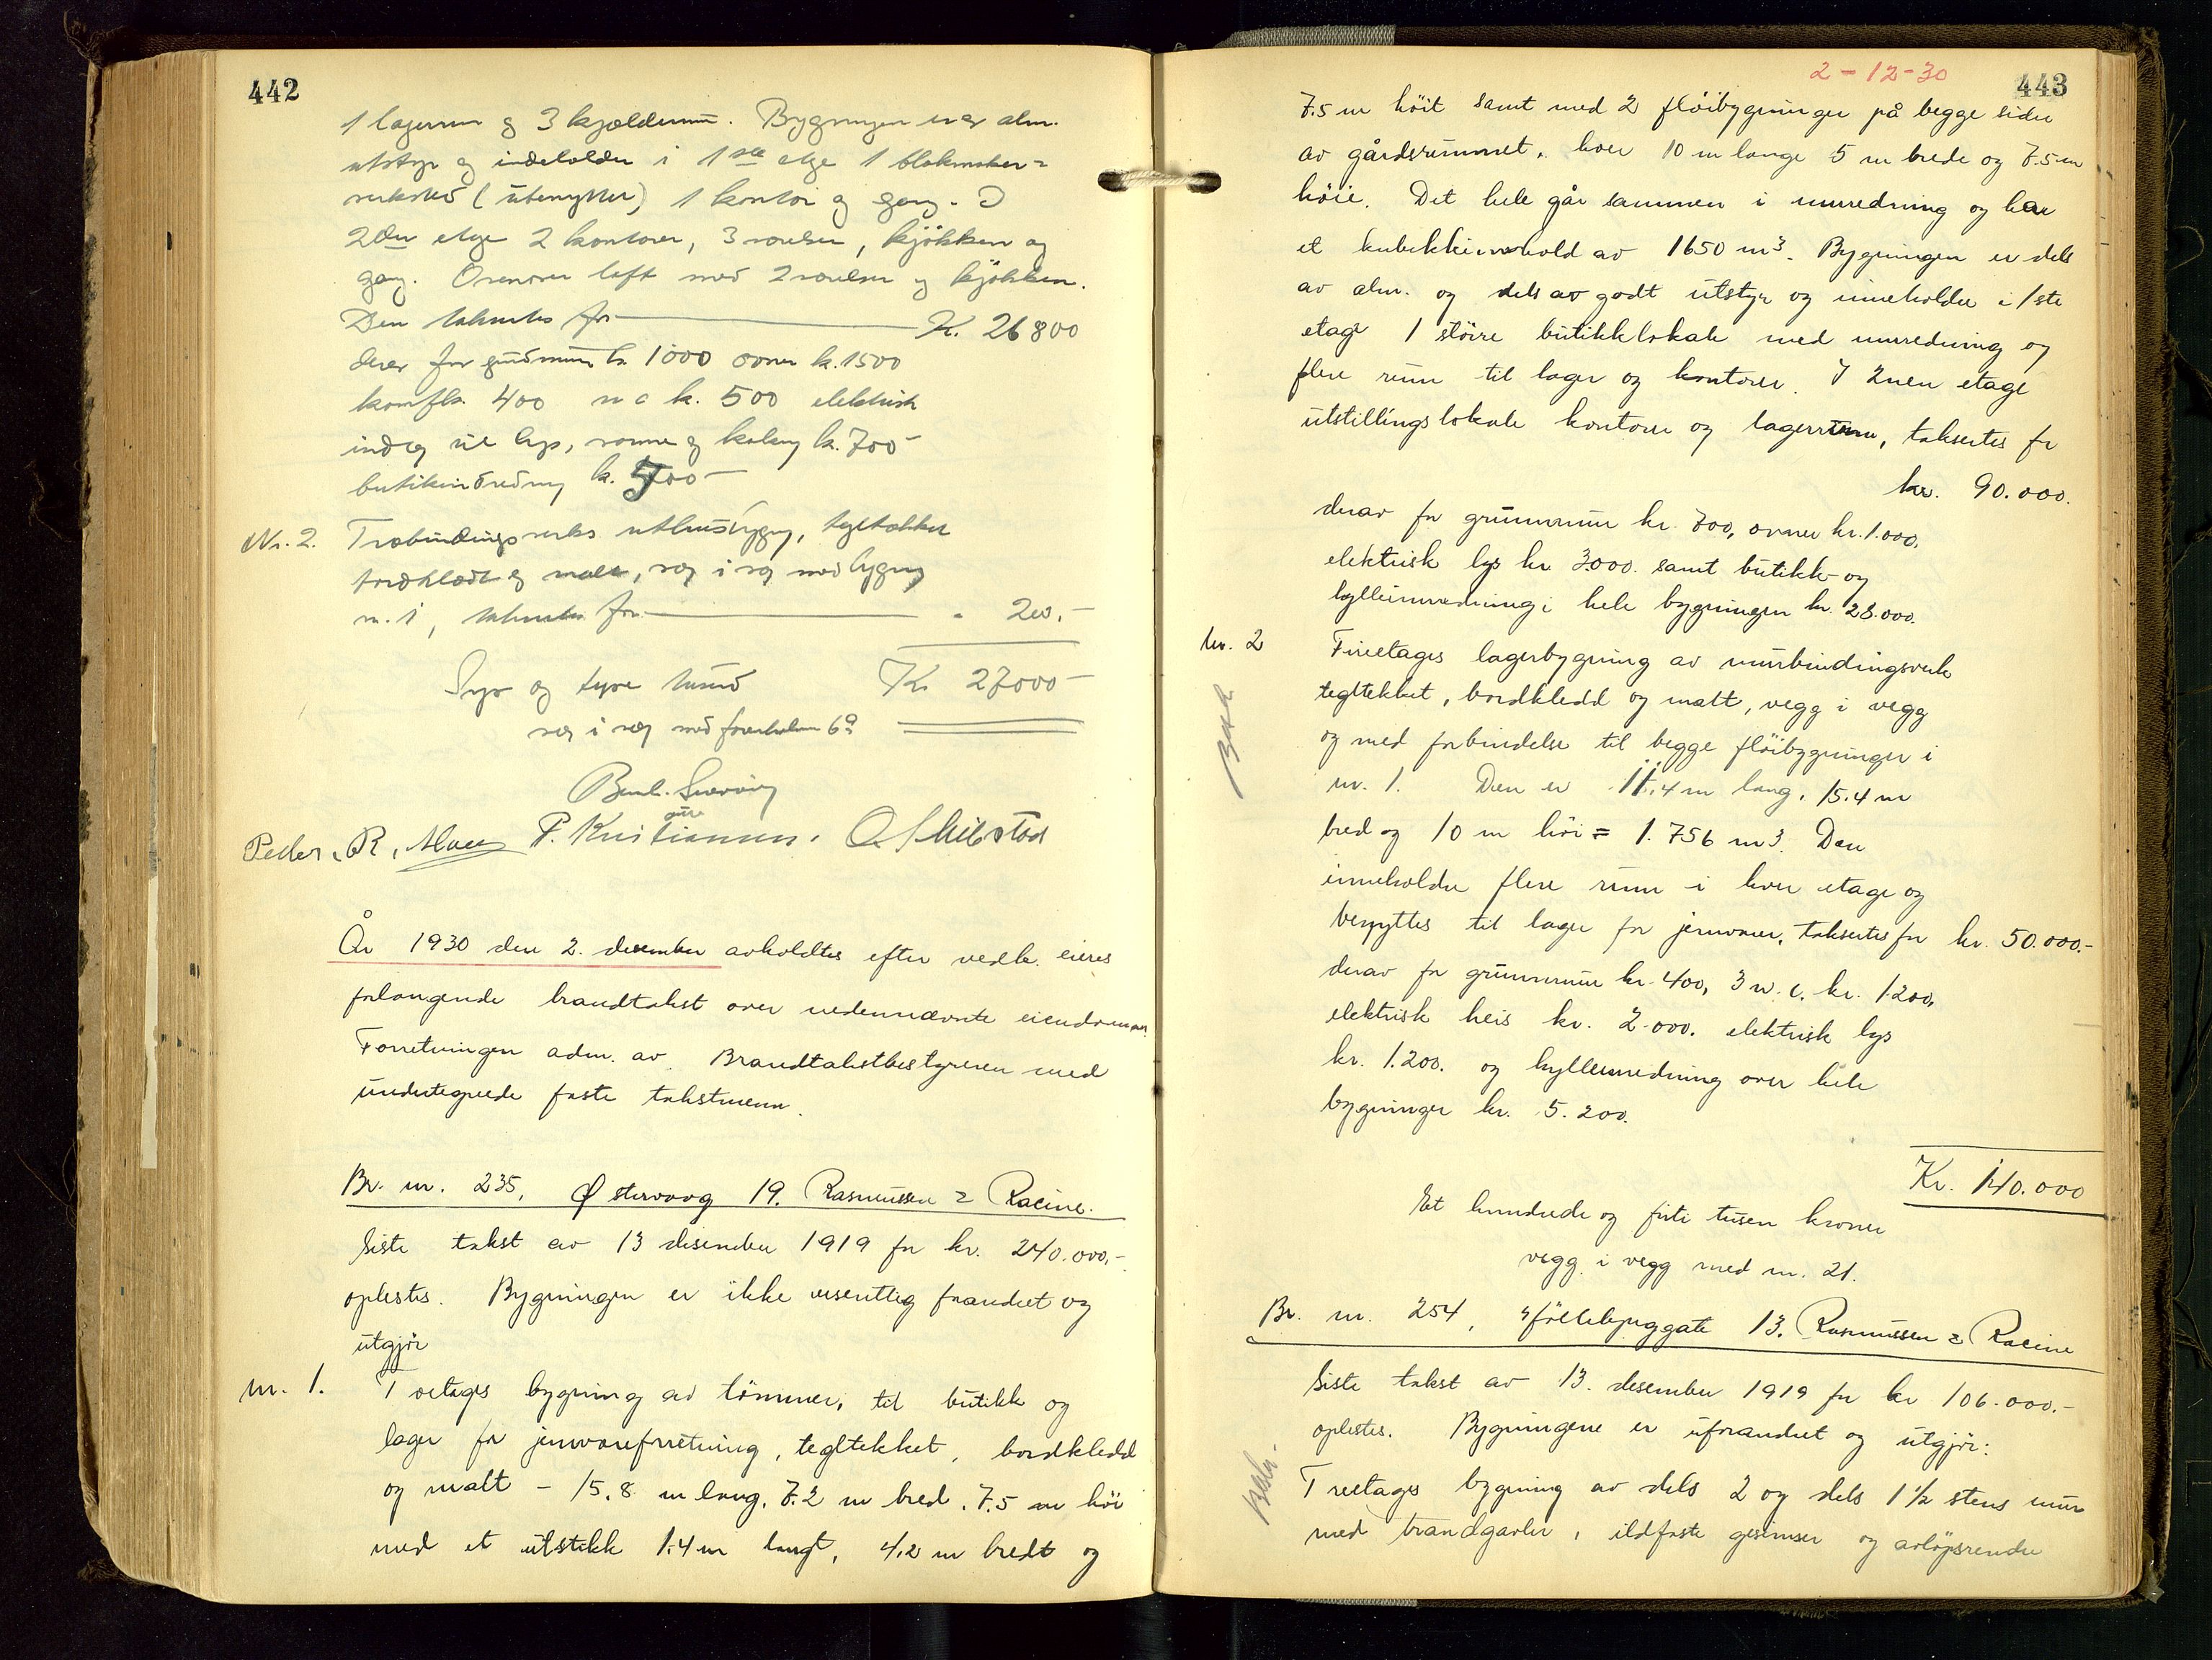 442
1 lagerrum og 3 kjælderrum. Bygningen er av alm.
utstyr og indeholder i 1ste etge 1 blokmaker=
verksted (utenyttet) 1 kontor og gang. I
2den etge 2 kontorer, 3 værelser, kjøkken og
gang. Ovenover loft med 2 værelser og kjøkken.
Den taksertes for — K. 26800
derav for grundmur k. 1000 ovner k. 1500
komf k. 400 w c k. 500 elektrisk
indlæg til lys, varme og kokning k. 700-
butikindredning k. 500-
Nr. 2. Træbindingsverks uthusbygng, tegltækket
bordklædt og malt, væg i væg med bygng
nr. 1, taksertes for — " 200.-
Syv og tyve tusind K. 27000-
væg i væg med 6a
Bernh.
Peder. R. P. Kristiansen. O. Skibstad
År 1930 den 2. desember avholdtes efter vedk. eieres
forlangende brandtakst over nedennævnte eiendommer
Forretningen adm. av Brandtakstbestyreren med
undertegnede faste takstmenn.
Br. nr. 235, Østervaag 19. Rasmussen & Racine.
Siste takst av 13 desember 1919 for kr. 240.000.-
oplestes. Bygningen er ikke vesentlig forandret og
utgjör
nr. 1. Toetages bygning av tömmer, til butikk og
lager for jernvareforretning, tegltekket, bordkledd
og malt - 15.8 m lang, 7.2 m bred, 7.5 m höi
med et utstikk 1.4 m langt, 4.2 m bredt og
2-12-30
443
7.5 m höit samt med 2 flöibygninger på begge sider
av gårdsrummet, hver 10 m lange 5 m brede og 7.5 m
höie. Det hele går sammen i innredning og har
et kubikkinnhold av 1650 m3. Bygningen er dels
av alm. og dels av godt utstyr og inneholder i 1ste
etage 1 större butikklokale med innredning og
flere rum til lager og kontorer. I 2nen etage
utstillingslokale kontorer og lagerrum, taksertes for
kr. 90.000.
derav for grunnmur kr. 700, ovner kr. 1.000.
elektrisk lys kr 3.000. samt butikk- og
hylleinnredning i hele bygningen kr. 28.000.
Nr. 2 Fireetages lagerbygning av murbindingsverk
tegltekket, bordkledd og malt, vegg i vegg
og med forbindelse til begge flöibygninger i
nr. 1. Den er 11.4 m lang, 15.4 m
bred og 10 m höi = 1.756 m3. Den
inneholder flere rum i hver etage og
benyttes til lager for jernvarer, taksertes for kr. 50.000.-
derav for grunnmur kr. 400, 3 w.c. kr. 1200,
elektrisk heis kr. 2.000. elektrisk lys
kr. 1.200. og hylleinnredning over hele
bygningen kr. 5.200.
Kr. 140.000
Et hundrede og firti tusen kroner
vegg i vegg med nr. 21.
Br. nr. 254, 13. Rasmussen & Racine
Siste takst av 13. desember 1919 for kr 106.000.-
oplestes. Bygningene er uforandret og utgjör:
Treetages bygning av dels 2 og dels 1 1/2 stens mur
med brandgavler, ildfaste gesimser og avløpsrender